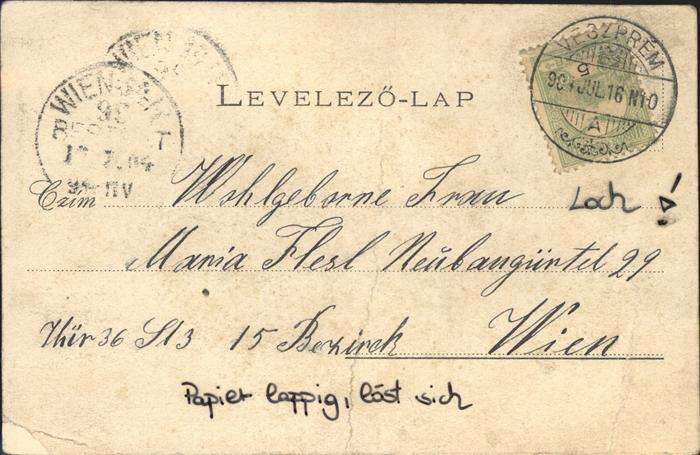 LEVELEZŐ-LAP
VESZPRÉM
904 JUL 16 N10
A
WIEN
Czim Wohlgeborne Frau
Loch !
Maria Flesl Neubaugürtel 29
Thür 36 St 3 15 Bezirck Wien
Papier lappig, löst sich